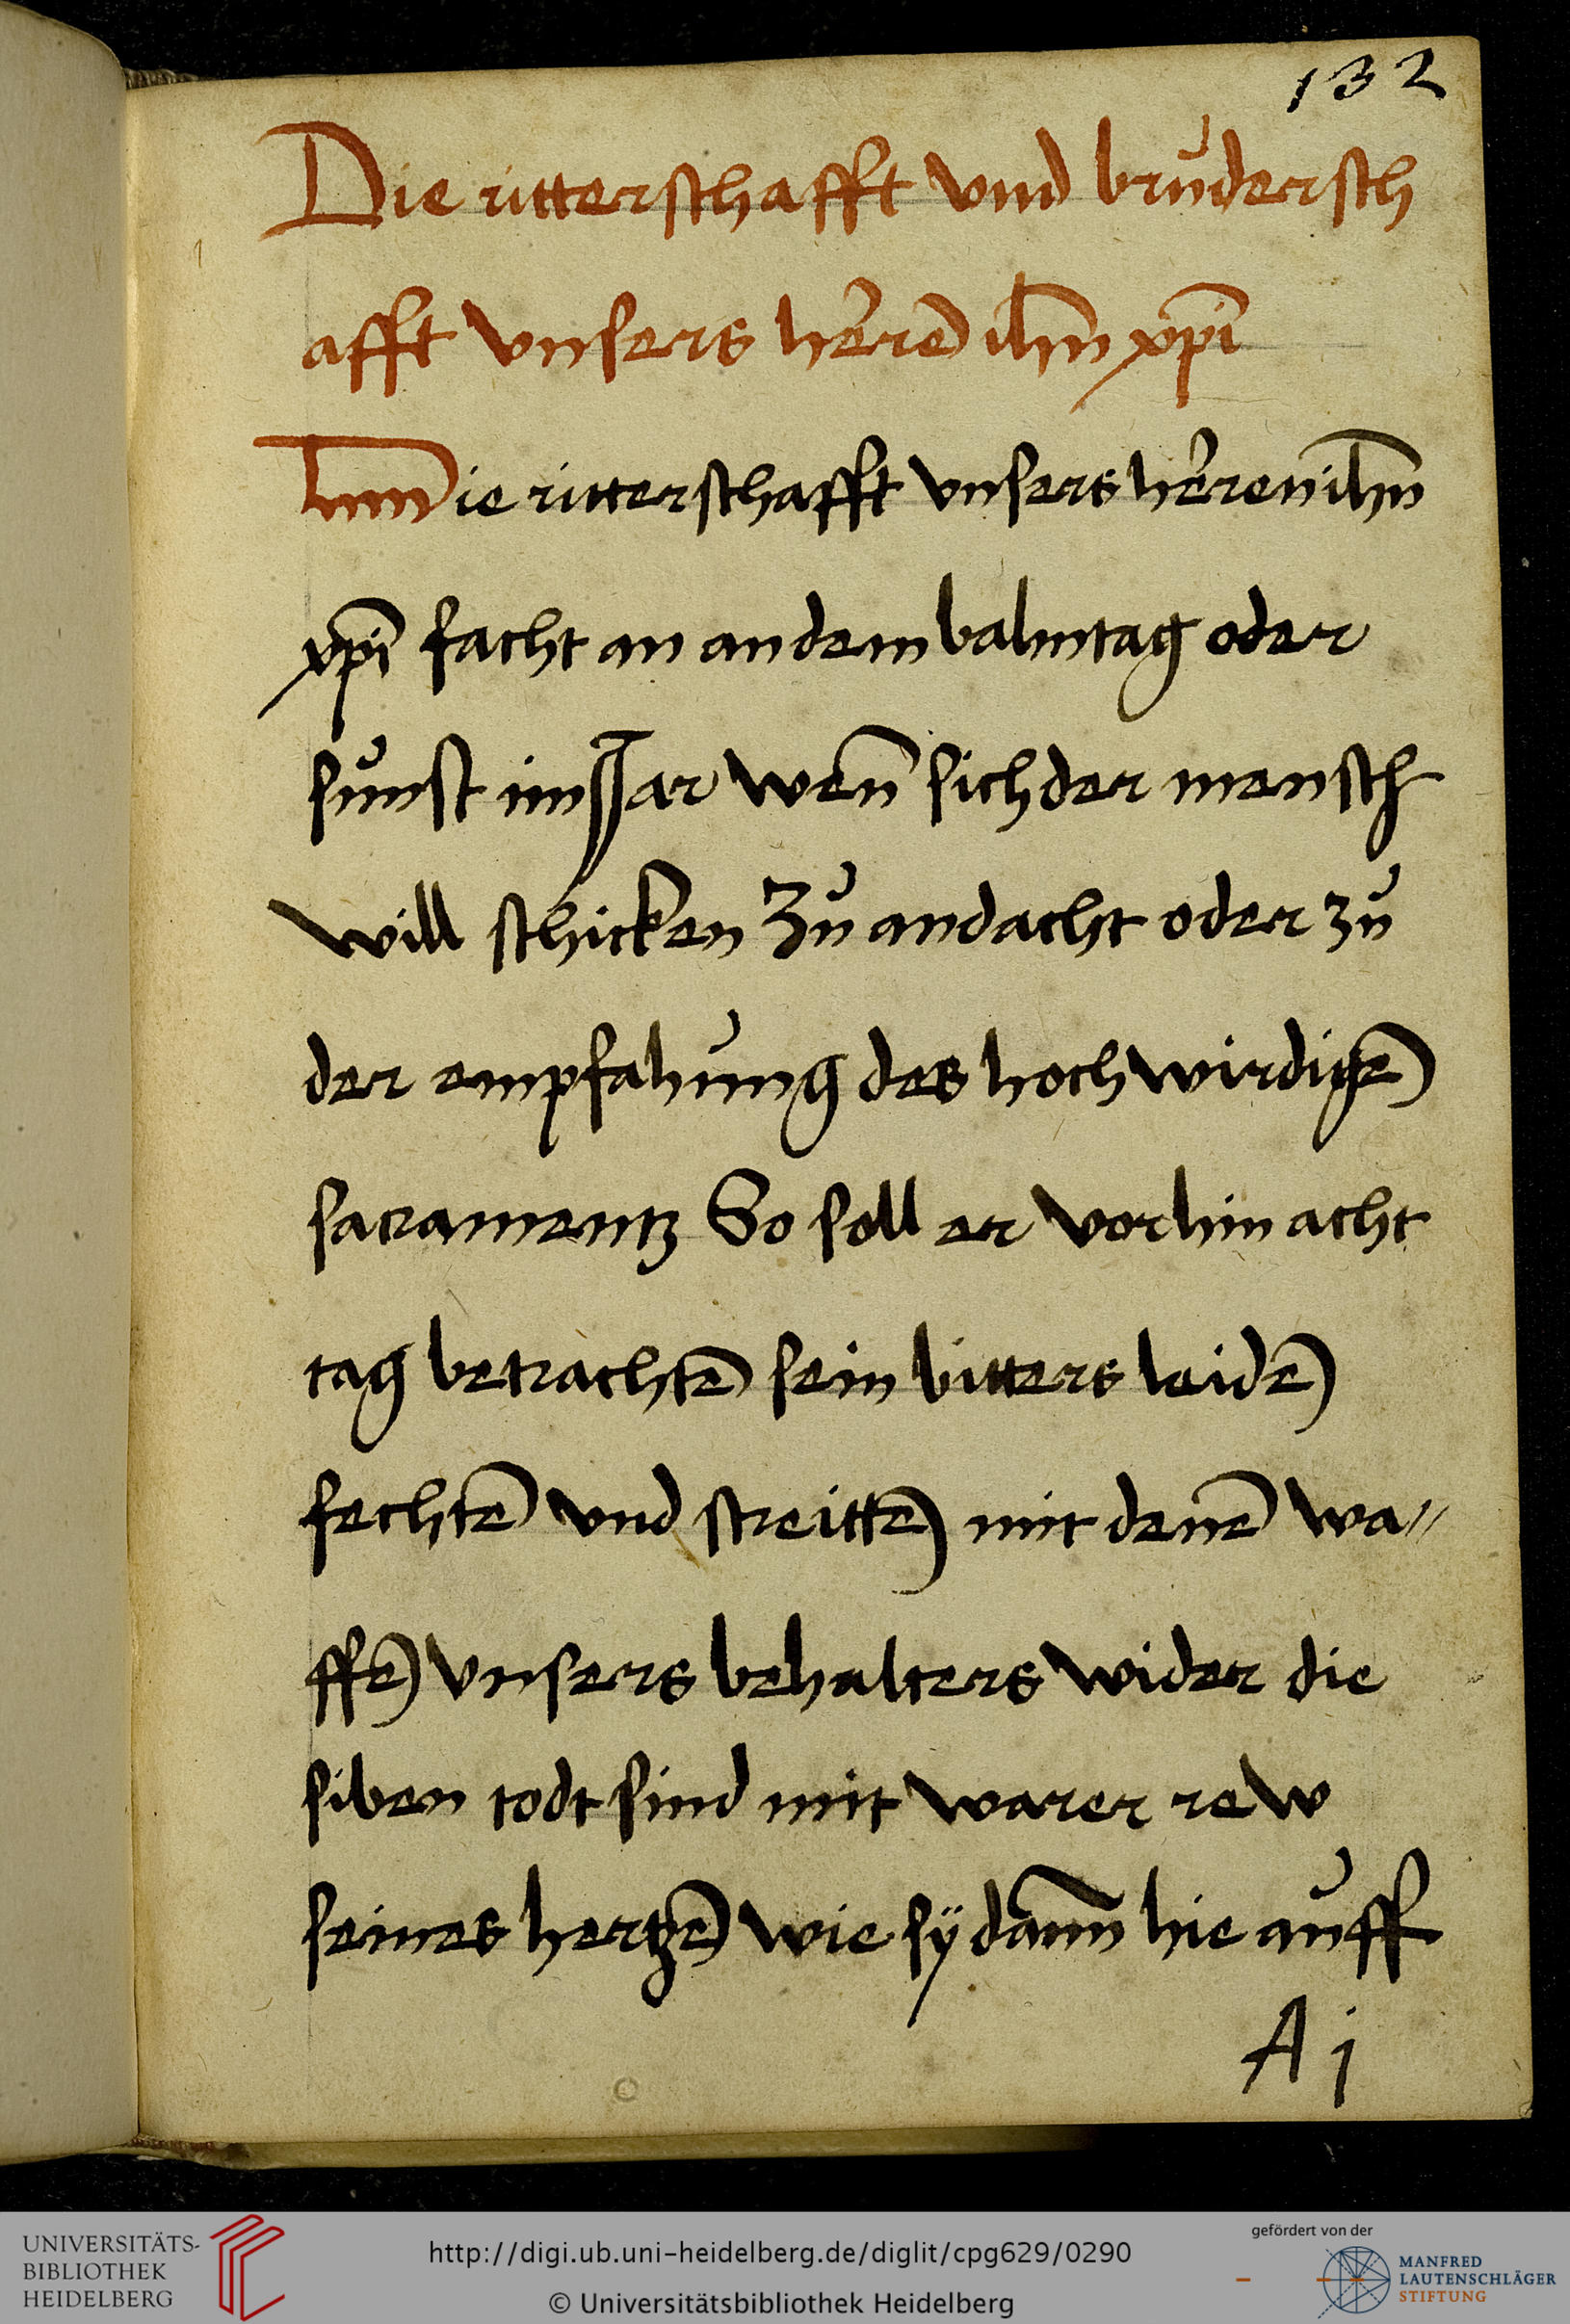 132
Die ritterschafft vnd brůdersch
afft vnsers herrē ihm xp̄i
ie ritterschafft vnsers herren ihm
xp̄i facht an an dem balmtag oder
sunst im Jar wen̄ sich der mensch
will schicken Zů andacht oder zů
der empfahung des hochwirdigē
sacramentz So soll er vorhin acht
tag betrachtē sein bitters leidē
fechtē vnd streittē mit denē wa〃
ffē vnsers behalters wider die
siben todt sind mit warer rew
seines hertzē wie sÿ dann̄ hie auff
A j
UNIVERSITÄTS-
BIBLIOTHEK
HEIDELBERG
http://digi.ub.uni-heidelberg.de/diglit/cpg629/0290
© Universitätsbibliothek Heidelberg
gefördert von der
MANFRED
LAUTENSCHLÄGER
STIFTUNG